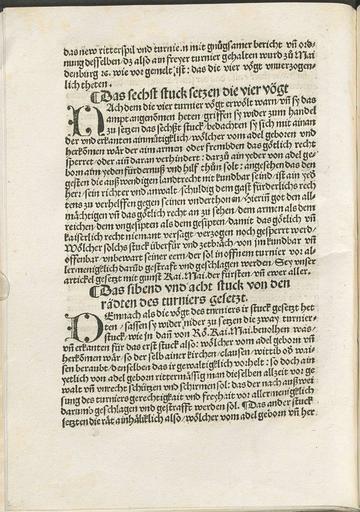 das new ritterspil vnd turnier mit gnůgsamer bericht vn̄ ord-
nung desselben / dz also ain freyer turnier gehalten wurd zů Mai
denburg ꝛc. wie vor gemelt ist: das die vier vögt vnuerzogen-
lich theten.
¶Das sechst stuck setzen die vier vögt
NAch dem die vier turnier vögt erwölt warn / vn̄ sy das
ampt angenōmen heten / griffen sy wider zum handel
zů setzen das sechßt stuck / bedachten sy sich mit ainan
der vnd erkanten ainmütigklich / wölcher vom adel geborn vnd
herkōmen wär der aim armen oder frembden das götlich recht
sperret / oder ain daran verhindert: darzů ain yeder von adel ge-
born aim yeden fürdernuß vnd hilff thůn solt: angesehen das den
gesten die außwendigen landtrecht nit kundbar seind / ist ain yed
her: sein richter vnd anwalt / schuldig dem gast fürderlichs rech
tens zů verhelffen gegen seinen vnderthon en / Hierin got den all
mächtigen vn̄ das götlich recht an zů sehen / dem armen als dem
reichen / dem vngesipten als dem gesipten / damit das götlich vn̄
kaiserlich recht niemant versagt verzogen noch gesperrt werd /
Wölcher solchs stuck überfür vnd zerbräch / von im kundbar vn̄
offenbar / vnbewart seiner eern / der sol in offnem turnier vor al-
lermenigklich darūb gestrafft vnd geschlagen werden. Sey vnser
artickel gesetzt mit gunst Kai. Mai. der fürsten / vn̄ ewer aller.
¶Das sibend vnd acht stuck von den
rädten des turniers gesetzt.
DEmnach als die vögt des turniers ir stuck gesetzt het
ten / sassen sy wider nider zů setzen die zway turnier-
stuck / wie in dañ von Rö. Kai. Mai. beuolhen was /
vn̄ erkanten für das erst stuck also: wölcher vom adel geborn vn̄
herkōmen wär / so der selb ainer kirchen / clausen / wittib od wai-
sen beraubt / den selben das ir gewaltigklich vorhelt: so doch ain
yetlich von adel geborn rittermässig man dieselben allzeit vor ge
walt vn̄ vnrecht schützen vnd schirmen sol: das der nach außwei
sung des turniers gerechtigkait vnd freyhait vor allermenigklich
darumb geschlagen vnd gestrafft werden sol. ¶Das ander stuck
setzten die rät ainhäliklich also / wölcher vom adel geborn vn̄ her